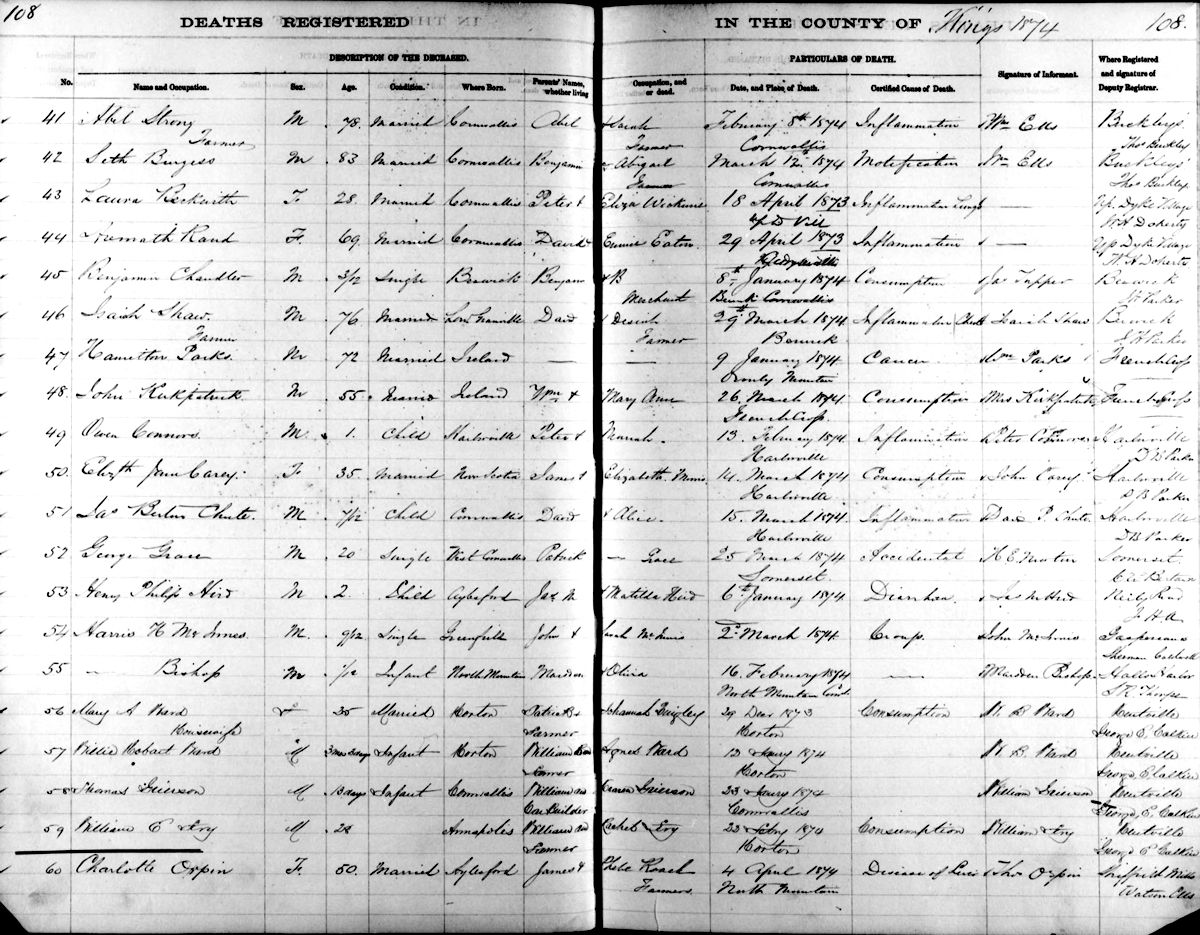 108
DEATHS REGISTERED IN THE COUNTY OF Kings 1874 108.
DESCRIPTION OF THE DECEASED. PARTICULARS OF DEATH.
No. Name and Occupation. Sex. Age. Condition. Where Born. Parents' Names, whether living Occupation, and or dead. Date, and Place, of Death. Certified Cause of Death. Signature of Informant. Where Registered and signature of Deputy Registrar.
41 Abel Strong M 78. Married Cornwallis Abel & Sarah February 8th 1874 Inflammation Wm Ells Buckleys
Farmer Farmer Cornwallis Thos Buckley
42 Seth Burgess M 83 Married Cornwallis Benjamin & Abigail March 12th 1874 Motification Wm Ells Buckleys
Farmer Cornwallis Thos Buckley
43 Laura F 28. Married Cornwallis Peter & Eliza 18 April 1873 Inflammation Lungs — Up Dyke Village
W H Doherty
44 Rand F. 69. Married Cornwallis David & Eunice Eaton. 29 April 1873 Inflammation — Up Dyke Village
W H Doherty
45 Benjamin Chandler M. 3/12 Single Berwick Benjamin & B 8th January 1874 Consumption Jas Tupper Berwick
Merchant Cornwallis Parker
46 Isaiah Shaw. M. 76 Married Low Granville David & 29th March 1874 Inflammation Chest Isaiah Shaw Berwick
Farmer Farmer Berwick Parker
47 Hamilton Parks. M 72 Married Ireland — — 9 January 1874. Cancer Wm Parks French Cross
Mountain
48. John Kirkpatrick M 55 Married Ireland Wm & Mary Ann 26. March 1874. Consumption Mrs Kirkpatrick French Cross
French Cross
49 Owen Connors. M. 1. Child Harborville Peter & Mariah. 13. February 1874. Inflamination Peter Connors Harborville
Harborville D B Parker
50. Elizth Jane Carey. F 35 Married Nova Scotia James & Elizabeth. 14. March 1874 Consumption John Carey Harborville
Harborville D B Parker
51 Jas Chute. M. 7/12 Child Cornwallis David & Alice. 15. March 1874. Inflammation P. Chute. Harborville
Harborville D B Parker
52 George Grace M 20 Single West Cornwallis Patrick — Grace 25 March 1874 Accidental Somerset.
Somerset.
53 Henry Philip Hird M 2. Child Aylesford Jas & Matilda Hird 6th January 1874 Diarrhea.
J. H. A
54 Harris H McInnes M. 9/12 Single Greenfield John & Sarah McInnis 2d March 1874. Croup. John McInnis Gaspereau
Sherman
55 — Bishop M 1/12 Infant North Mountain & Olivia 16. February 1874 — Bishop
North Mountain
56 Mary A Ward F 35 Married Horton Patrick & Johannah Quigley 29 Decr 1873 Consumption W. B Ward Kentville
Housewife Farmer Horton George E Calkin
57 Willie Hobart Ward M Infant Horton William Agnes Ward 1874 W. B Ward Kentville
Farmer Horton George E Calkin
58 Thomas Grierson M 13 days Infant Cornwallis William and Grierson 23 1874 William Grierson Kentville
Car Builder Cornwallis George E. Calkin
59 William E M 28 Annapolis William and Rachel 1874 Consumption William Kentville
Farmer Horton George E Calkin
60 Charlotte Orpin F. 50. Married Aylesford James & Phebe Roach 4 April 1874 Disease of Liver Thos Orpin Sheffield Mills
Farmers North Mountain Watson Ells